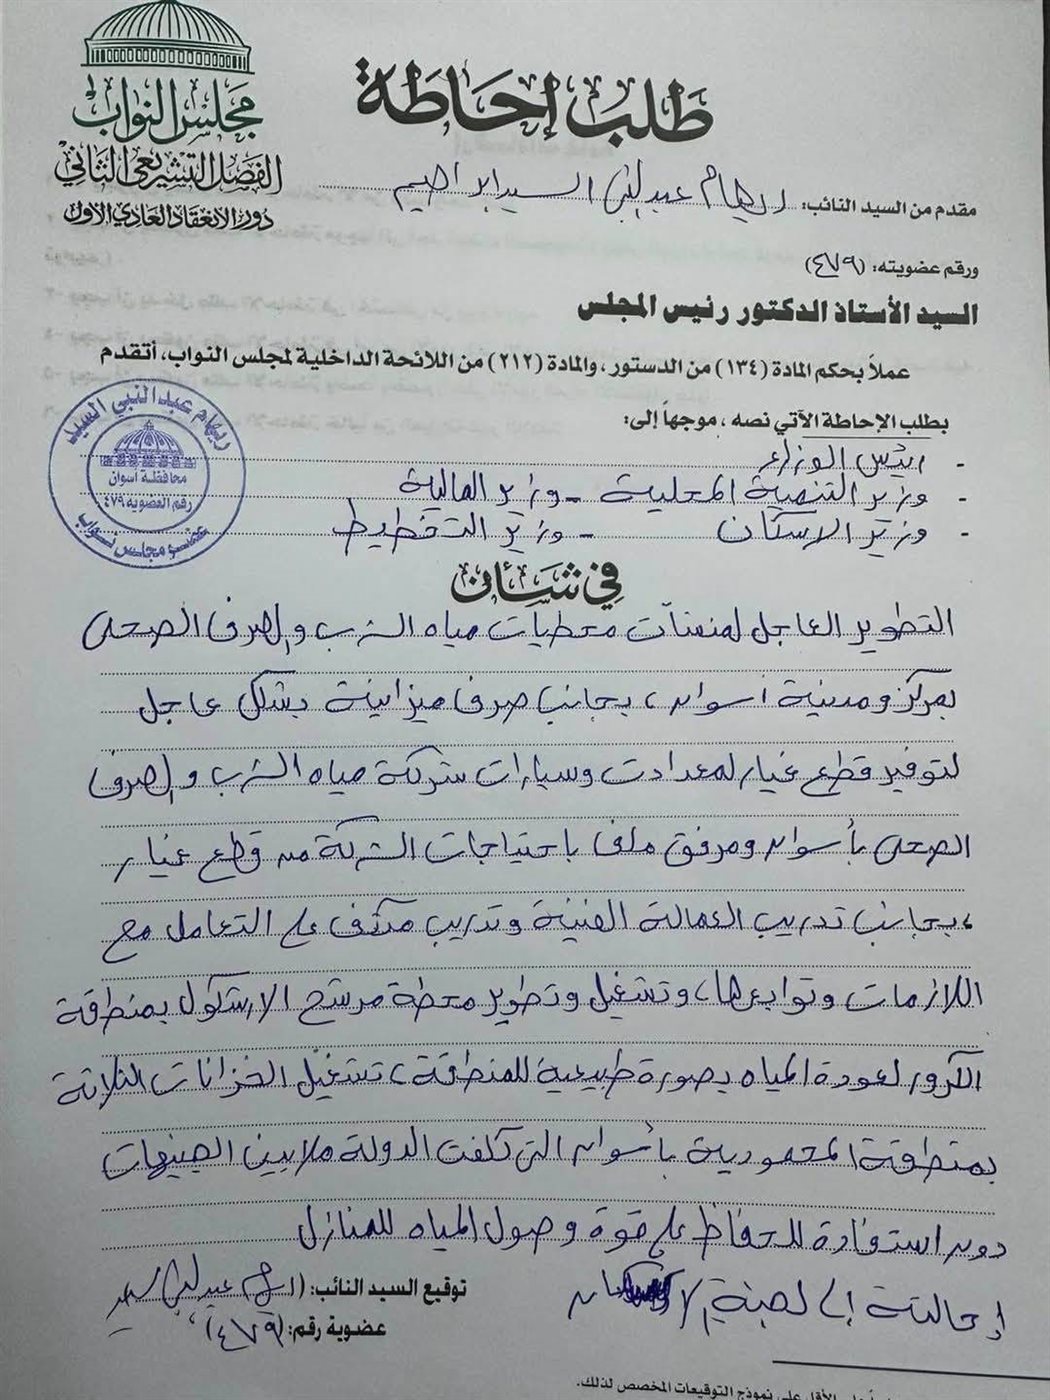 مجلس النواب
الفصل التشريعى الثانى
دور الانعقاد العادى الأول
طلب إحاطة
مقدم من السيد النائب: ريهام عبد النبى السيد ابراهيم
ورقم عضويته: (٤٧٩)
السيد الأستاذ الدكتور رئيس المجلس
عملاً بحكم المادة (١٣٤) من الدستور، والمادة (٢١٢) من اللائحة الداخلية لمجلس النواب، أتقدم
بطلب الإحاطة الآتي نصه، موجهاً إلى:
- رئيس الوزراء
- وزير التنمية المحلية - وزير المالية
- وزير الاسكان - وزير التخطيط
ريهام عبد النبي السيد
محافظة أسوان
رقم العضوية ٤٧٩
عضو مجلس نواب
في شأن
التطوير العاجل لمنشآت محطات مياه الشرب والصرف الصحى
بمركز ومدينة أسوان، بجانب صرف ميزانية بشكل عاجل
لتوفير قطع غيار لمعدات وسيارات شركة مياه الشرب والصرف
الصحى بأسوان ومرفق ملف باحتياجات الشركة من قطع غيار
، بجانب تدريب العمالة الفنية وتدريب مكثف على التعامل مع
اللازمات وتوابعها، وتشغيل وتطوير محطة مرشح الارسكول بمنطقة
الكرور لعودة المياه بصورة طبيعية للمنطقة، تشغيل الخزانات الثلاثة
بمنطقة المحمودية بأسوان التى كلفت الدولة ملايين الجنيهات
دون استفادة للحفاظ على قوة وصول المياه للمنازل
إحالته إلى لجنة
توقيع السيد النائب: (ريهام عبد النبى السيد
عضوية رقم: (٤٧٩)
الأقل على نموذج التوقيعات المخصص لذلك.